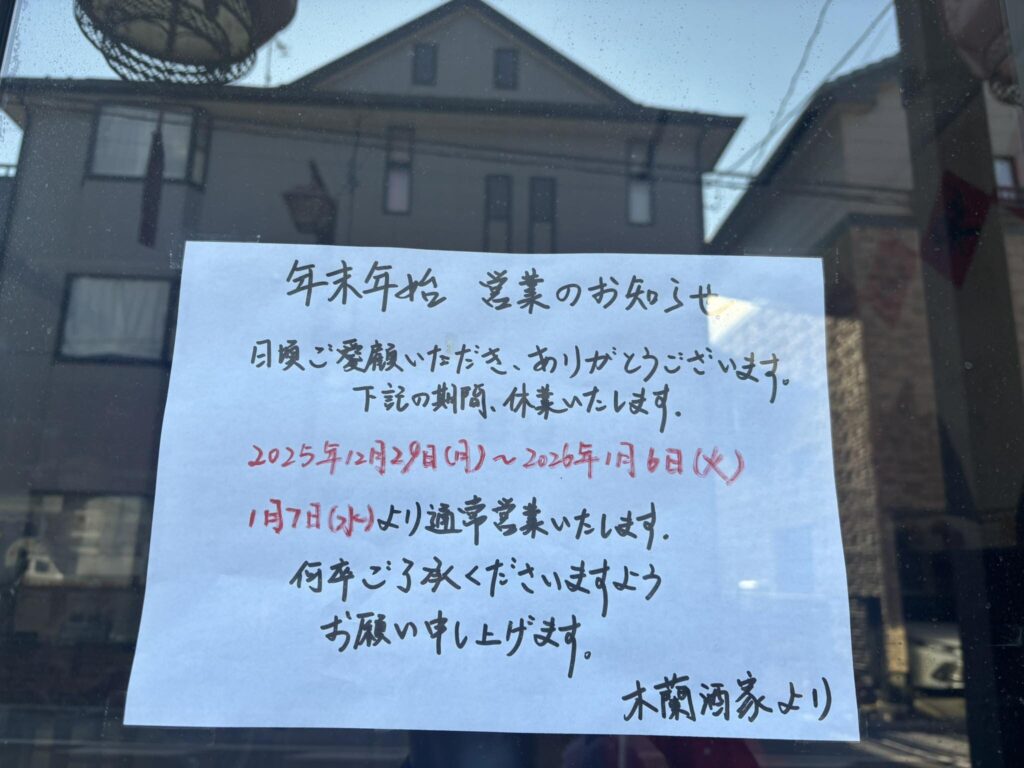 年末年始 営業のお知らせ
日頃ご愛願いただき、ありがとうございます。
下記の期間、休業いたします.
2025年12月29日(月)～2026年1月6日(火)
1月7日(水)より通常営業いたします.
何卒ご了承くださいますよう
お願い申し上げます。
木蘭酒家より